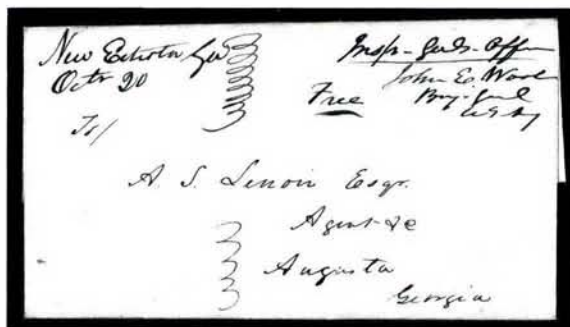 New Echota Ga
Octr 20
Insp-Genls-Offi
John E. Wool
Brig-Genl
U S Ay
Free
To/
A. S. Lenoir Esqr.
Agent &c
Augusta
Georgia